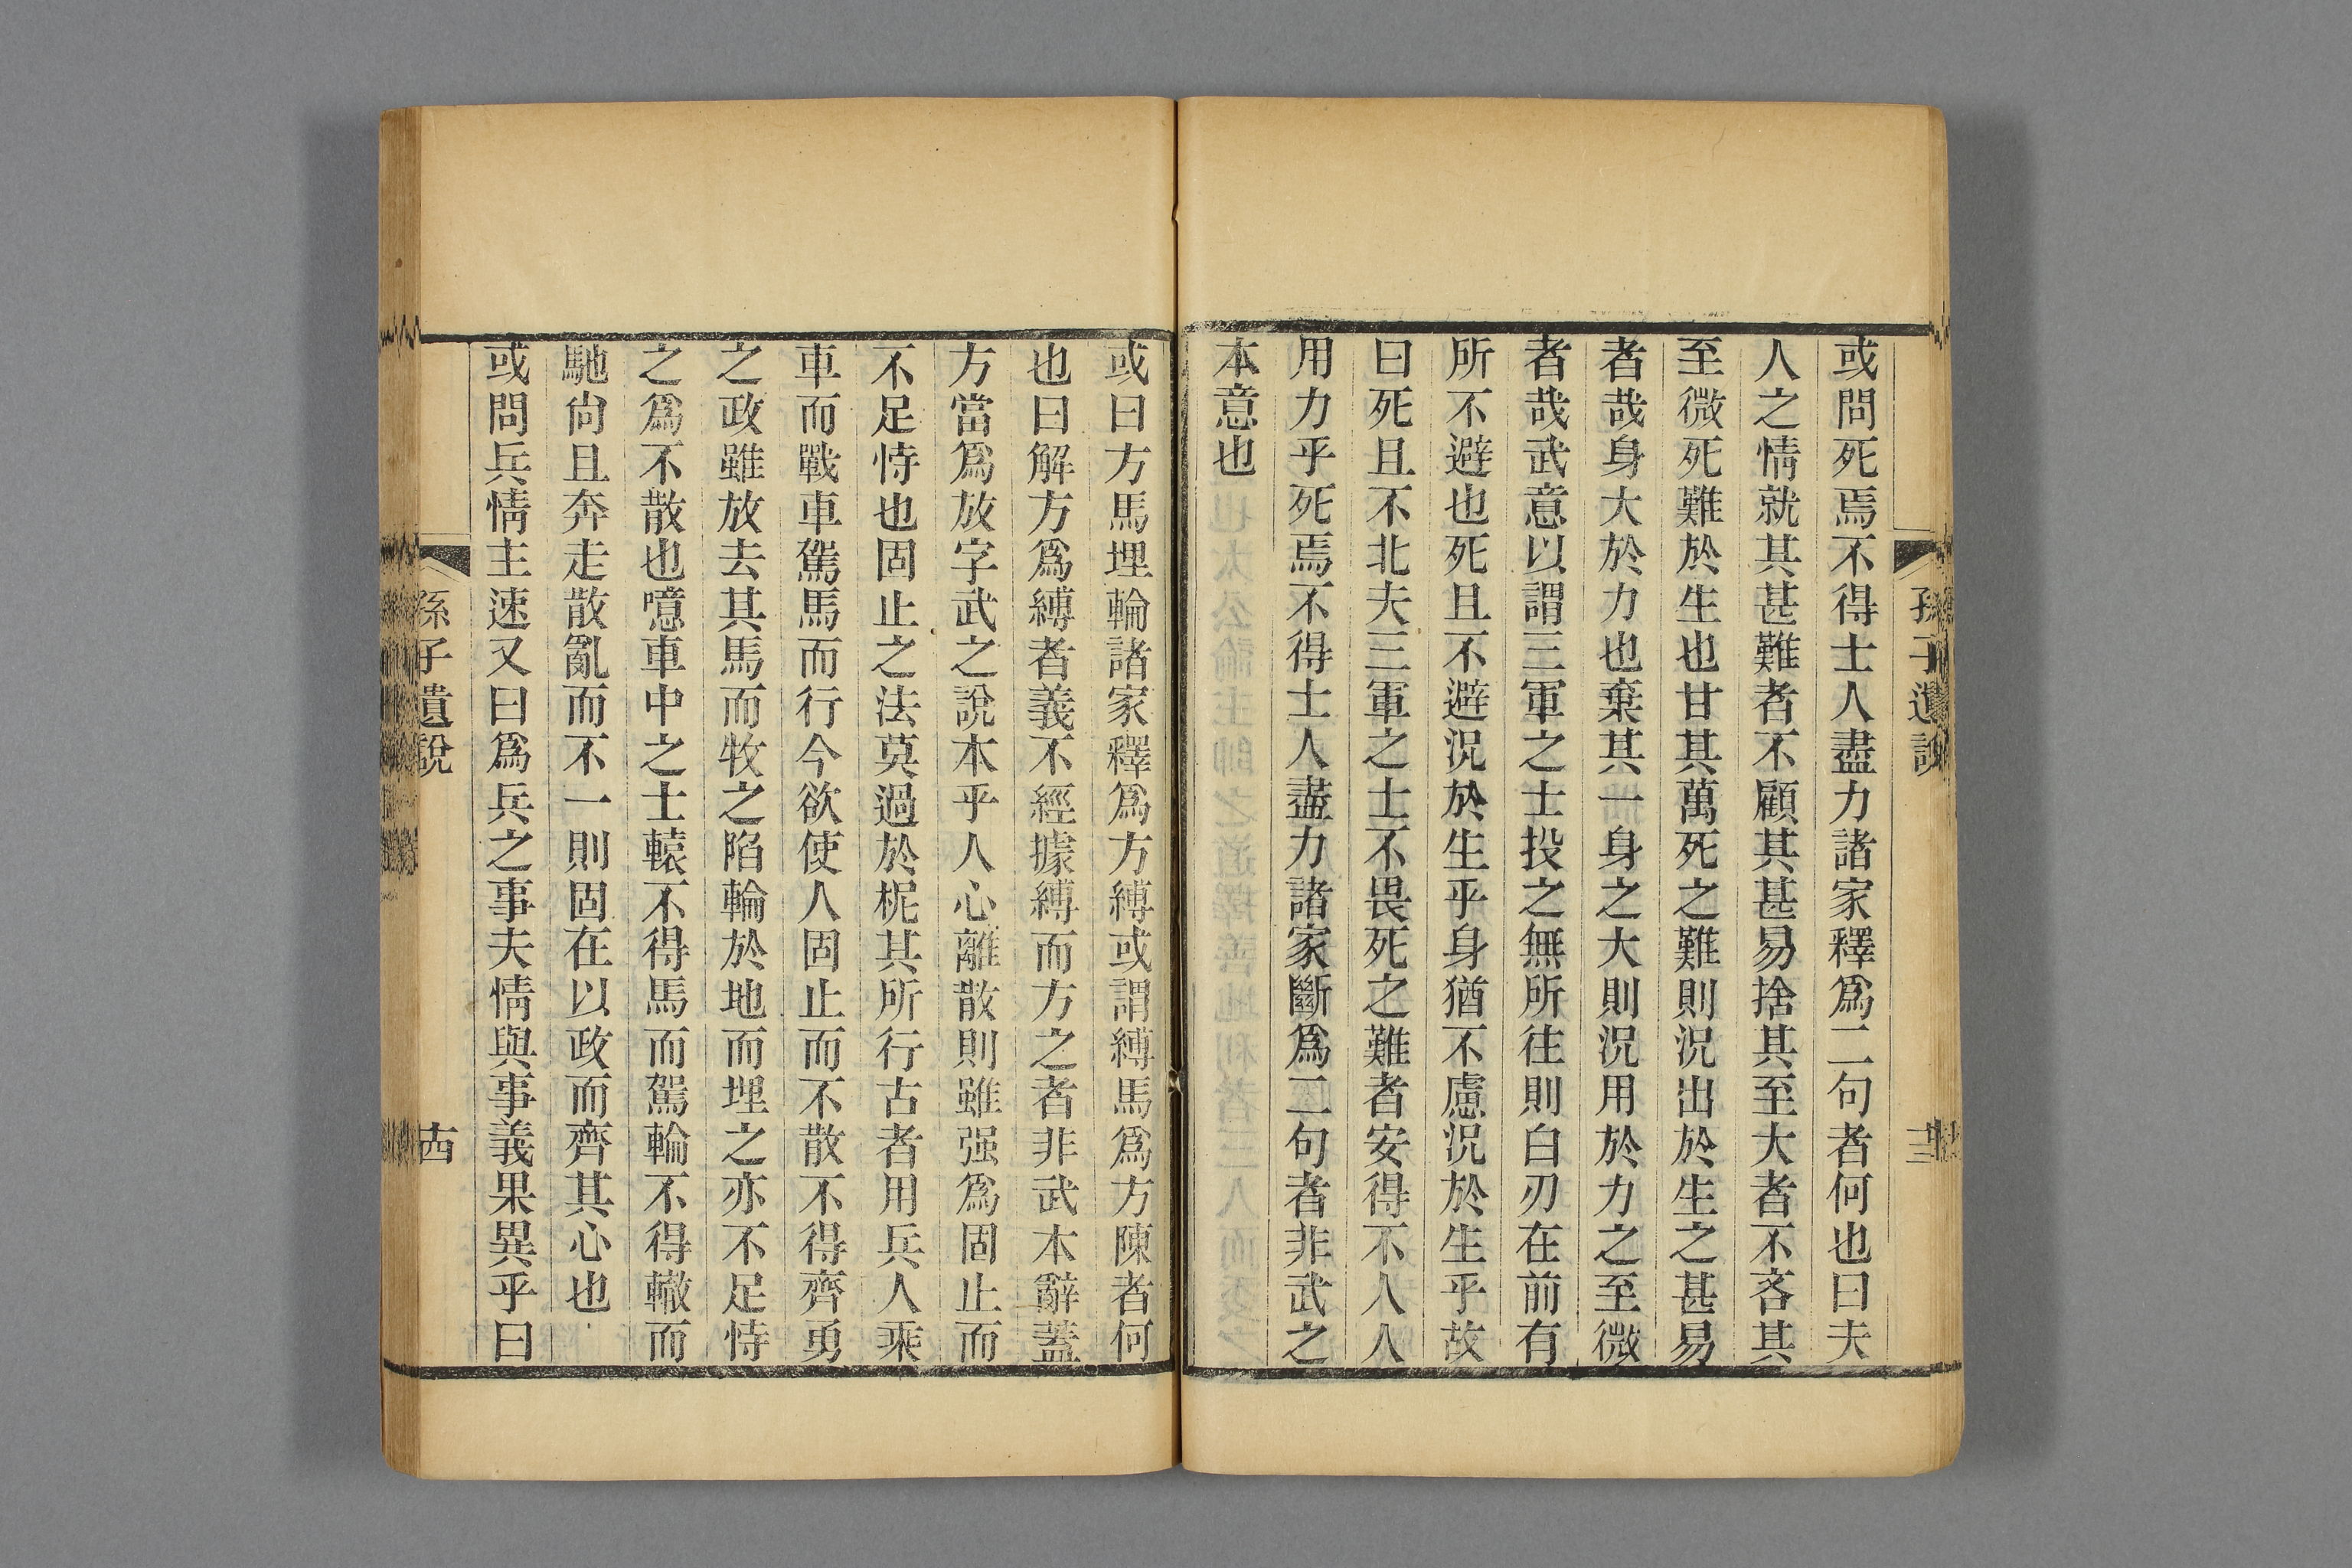 孫子遺說
或問死焉不得士人盡力諸家釋爲二句者何也曰夫
人之情就其甚難者不顧其甚易捨其至大者不吝其
至微死難於生也甘其萬死之難則況出於生之甚易
者哉身大於力也棄其一身之大則況用於力之至微
者哉武意以謂三軍之士投之無所往則白刃在前有
所不避也死且不避況於生乎身猶不慮況於生乎故
曰死且不北夫三軍之士不畏死之難者安得不人人
用力乎死焉不得士人盡力諸家斷爲二句者非武之
本意也
或曰方馬埋輪諸家釋爲方縛或謂縛馬爲方陳者何
也曰解方爲縛者義不經據縛而方之者非武本辭蓋
方當爲放字武之說本乎人心離散則雖强爲固止而
不足恃也固止之法莫過於柅其所行古者用兵人乘
車而戰車駕馬而行今欲使人固止而不散不得齊勇
之政雖放去其馬而牧之陷輪於地而埋之亦不足恃
之爲不散也噫車中之士轅不得馬而駕輪不得轍而
馳尙且奔走散亂而不一則固在以政而齊其心也
或問兵情主速又曰爲兵之事夫情與事義果異乎曰
孫子遺說